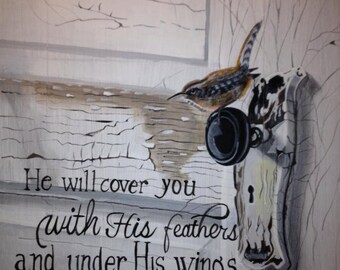 He will cover you
with His feathers
and under His wings